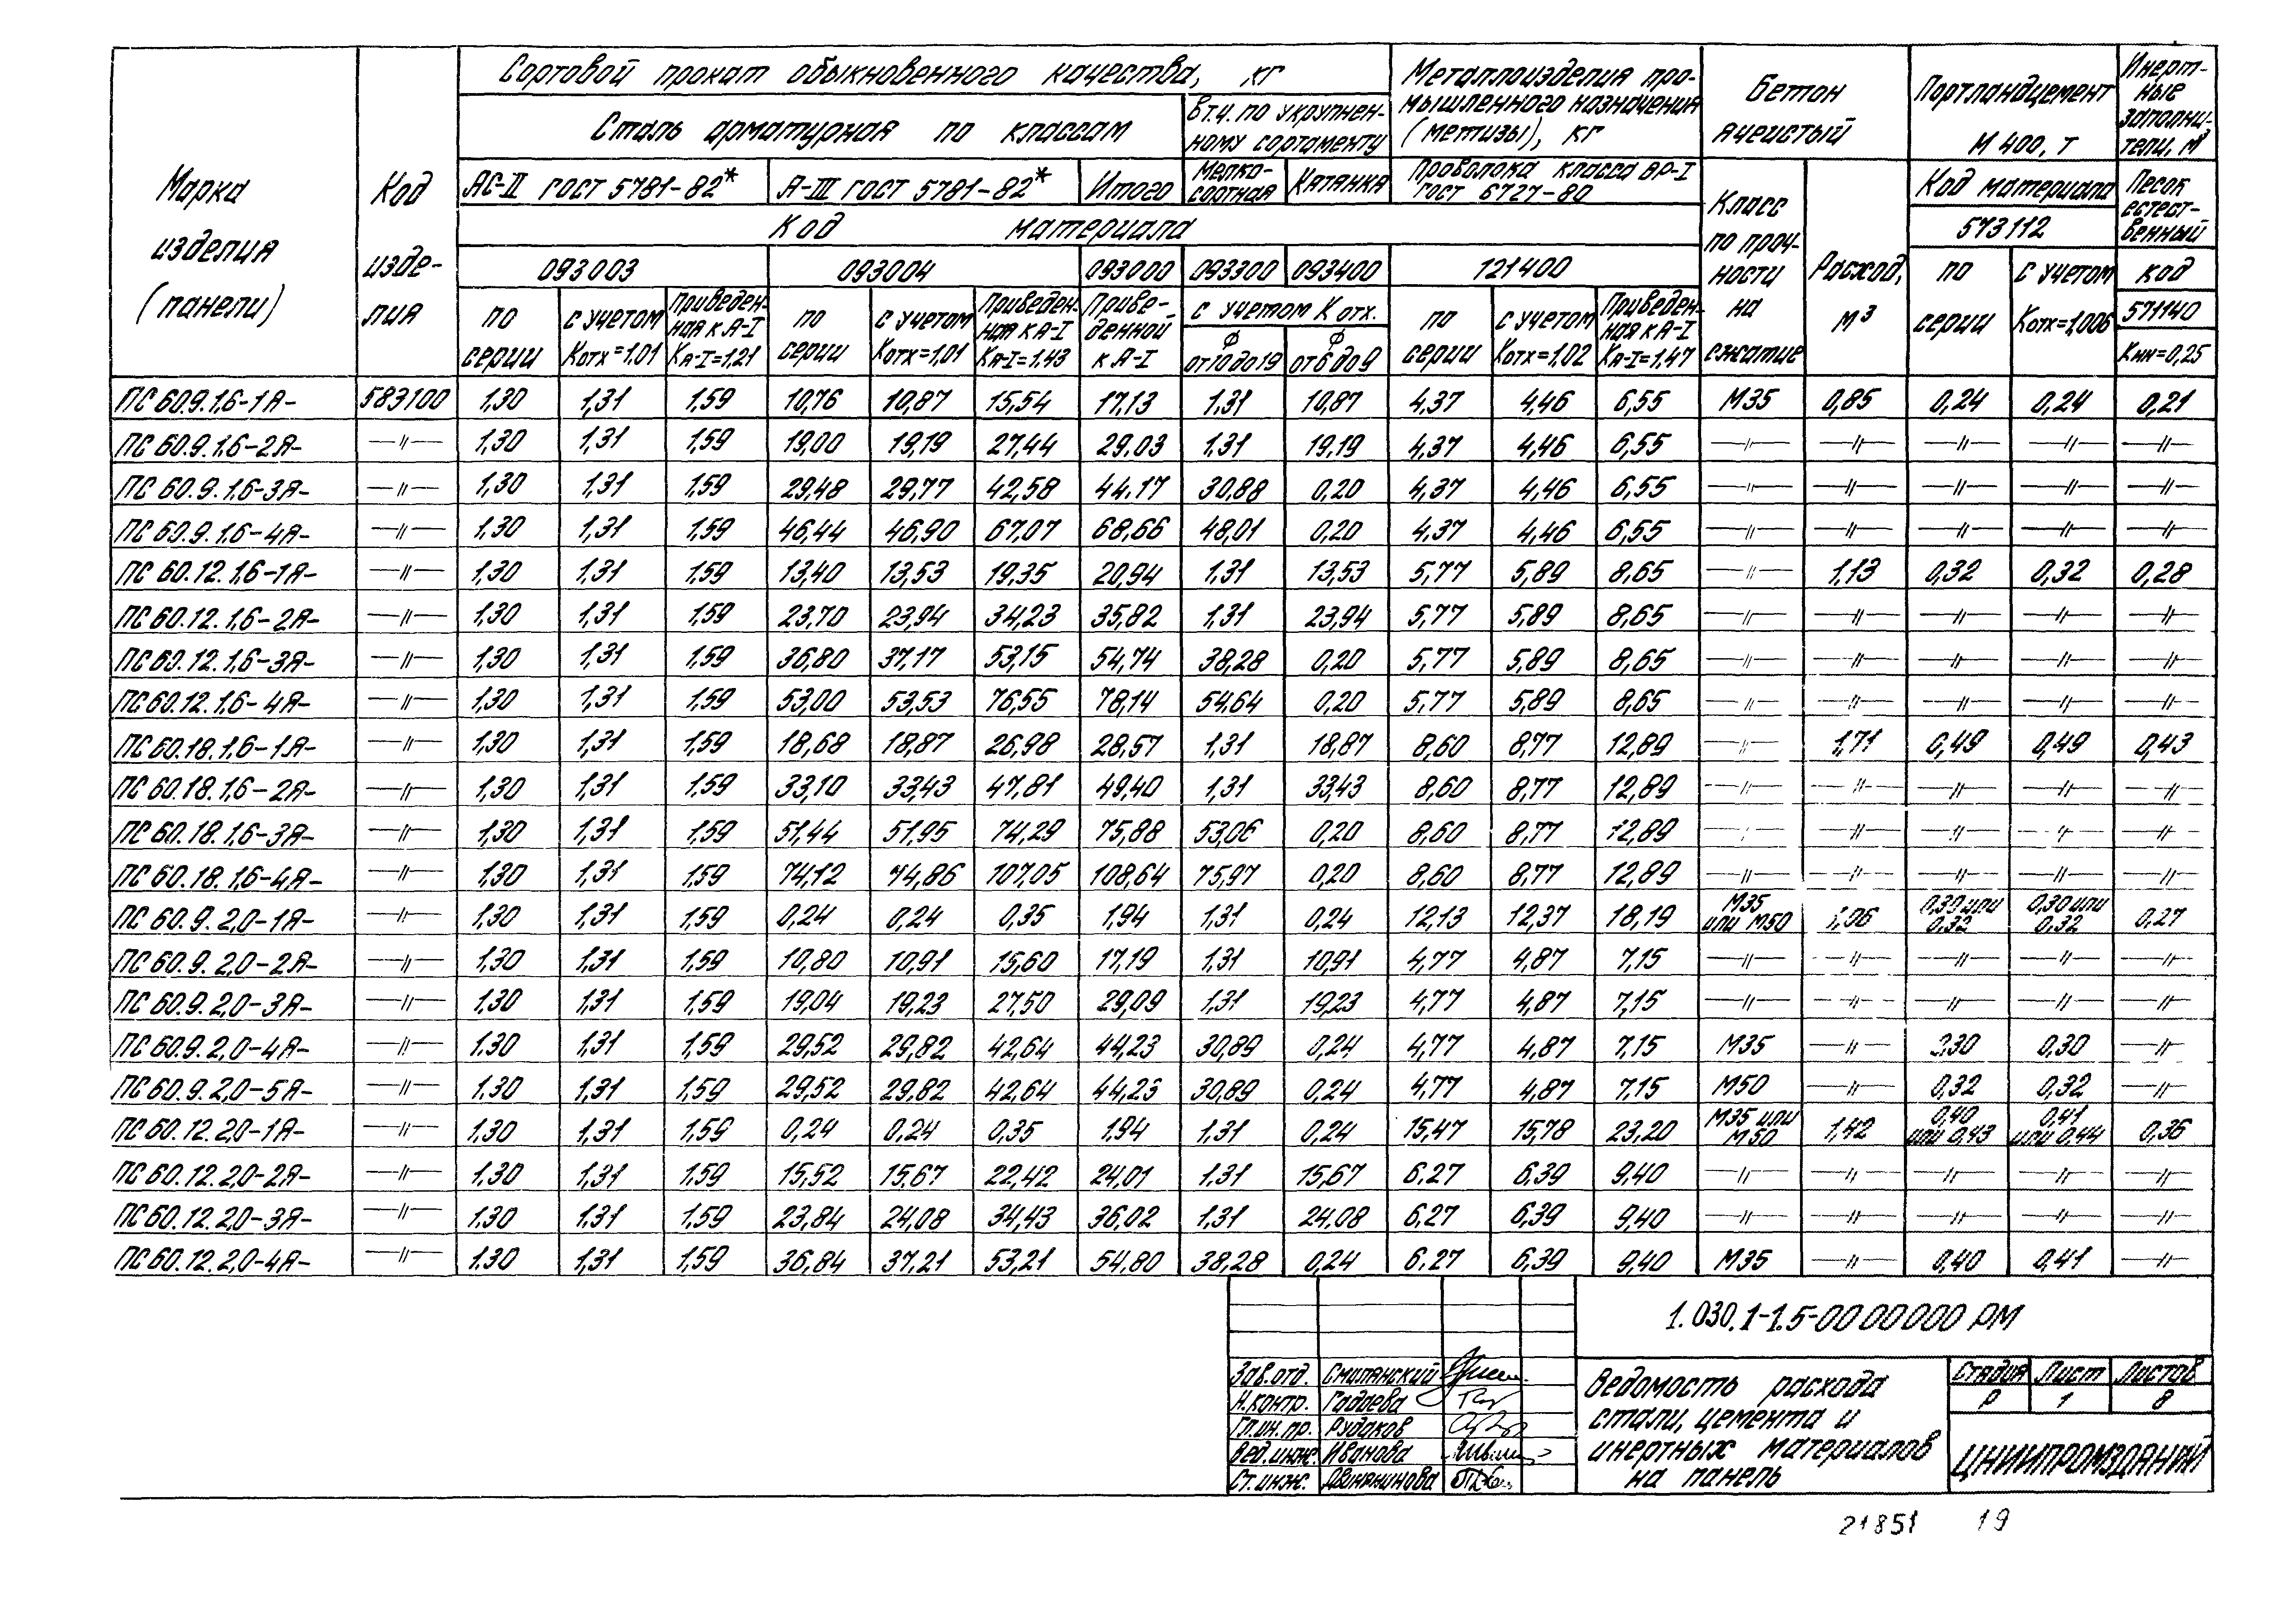 Сортовой прокат обыкновенного качества, кг
Металлоизделия про-
мышленного назначения
(метизы), кг
Бетон
ячеистый
Портландцемент
М 400, т
Инерт-
ные
заполни-
тели, м³
Сталь арматурная по классам
в т.ч. по укрупнен-
ному сортаменту
Марка
изделия
(панели)
Код
изде-
лия
АС-II ГОСТ 5781-82*
А-III ГОСТ 5781-82*
Итого
Мелко-
сортная
Катанка
Проволока класса ВР-I
ГОСТ 6727-80
Класс
по проч-
ности
на
сжатие
Расход,
м³
Код материала
573112
Песок
естест-
венный
Код материала
093003 093004 093000 093300 093400 121400
по
серии
с учетом
Котх=1,01
Приведен-
ная к А-I
КА-I=1,21
по
серии
с учетом
Котх=1,01
Приведен-
ная к А-I
КА-I=1,43
Приве-
денной
к А-I
с учетом К отх.
ф
от 10 до 19
ф
от 6 до 9
по
серии
с учетом
Котх=1,02
Приведен-
ная к А-I
КА-I=1,47
по
серии
с учетом
Котх=1,006
код
571140
Кин=0,25
ПС 60.9.1,6-1Я- 583100 1,30 1,31 1,59 10,76 10,87 15,54 17,13 1,31 10,87 4,37 4,46 6,55 М35 0,85 0,24 0,24 0,21
ПС 60.9.1,6-2Я- —〃— 1,30 1,31 1,59 19,00 19,19 27,44 29,03 1,31 19,19 4,37 4,46 6,55 —〃— —〃— —〃— —〃— —〃—
ПС 60.9.1,6-3Я- —〃— 1,30 1,31 1,59 29,48 29,77 42,58 44,17 30,88 0,20 4,37 4,46 6,55 —〃— —〃— —〃— —〃— —〃—
ПС 60.9.1,6-4Я- —〃— 1,30 1,31 1,59 46,44 46,90 67,07 68,66 48,01 0,20 4,37 4,46 6,55 —〃— —〃— —〃— —〃— —〃—
ПС 60.12.1,6-1Я- —〃— 1,30 1,31 1,59 13,40 13,53 19,35 20,94 1,31 13,53 5,77 5,89 8,65 —〃— 1,13 0,32 0,32 0,28
ПС 60.12.1,6-2Я- —〃— 1,30 1,31 1,59 23,70 23,94 34,23 35,82 1,31 23,94 5,77 5,89 8,65 —〃— —〃— —〃— —〃— —〃—
ПС 60.12.1,6-3Я- —〃— 1,30 1,31 1,59 36,80 37,17 53,15 54,74 38,28 0,20 5,77 5,89 8,65 —〃— —〃— —〃— —〃— —〃—
ПС 60.12.1,6-4Я- —〃— 1,30 1,31 1,59 53,00 53,53 76,55 78,14 54,64 0,20 5,77 5,89 8,65 —〃— —〃— —〃— —〃— —〃—
ПС 60.18.1,6-1Я- —〃— 1,30 1,31 1,59 18,68 18,87 26,98 28,57 1,31 18,87 8,60 8,77 12,89 —〃— 1,71 0,49 0,49 0,43
ПС 60.18.1,6-2Я- —〃— 1,30 1,31 1,59 33,10 33,43 47,81 49,40 1,31 33,43 8,60 8,77 12,89 —〃— —〃— —〃— —〃— —〃—
ПС 60.18.1,6-3Я- —〃— 1,30 1,31 1,59 51,44 51,95 74,29 75,88 53,06 0,20 8,60 8,77 12,89 —〃— —〃— —〃— —〃— —〃—
ПС 60.18.1,6-4Я- —〃— 1,30 1,31 1,59 74,12 74,86 107,05 108,64 75,97 0,20 8,60 8,77 12,89 —〃— —〃— —〃— —〃— —〃—
ПС 60.9.2,0-1Я- —〃— 1,30 1,31 1,59 0,24 0,24 0,35 1,94 1,31 0,24 12,13 12,37 18,19 М35 или М50 1,06 0,30 или 0,32 0,30 или 0,32 0,27
ПС 60.9.2,0-2Я- —〃— 1,30 1,31 1,59 10,80 10,91 15,60 17,19 1,31 10,91 4,77 4,87 7,15 —〃— —〃— —〃— —〃— —〃—
ПС 60.9.2,0-3Я- —〃— 1,30 1,31 1,59 19,04 19,23 27,50 29,09 1,31 19,23 4,77 4,87 7,15 —〃— —〃— —〃— —〃— —〃—
ПС 60.9.2,0-4Я- —〃— 1,30 1,31 1,59 29,52 29,82 42,64 44,23 30,89 0,24 4,77 4,87 7,15 М35 —〃— 0,30 0,30 —〃—
ПС 60.9.2,0-5Я- —〃— 1,30 1,31 1,59 29,52 29,82 42,64 44,23 30,89 0,24 4,77 4,87 7,15 М50 —〃— 0,32 0,32 —〃—
ПС 60.12.2,0-1Я- —〃— 1,30 1,31 1,59 0,24 0,24 0,35 1,94 1,31 0,24 15,47 15,78 23,20 М35 или М50 1,42 0,40 или 0,43 0,41 или 0,44 0,36
ПС 60.12.2,0-2Я- —〃— 1,30 1,31 1,59 15,52 15,67 22,42 24,01 1,31 15,67 6,27 6,39 9,40 —〃— —〃— —〃— —〃— —〃—
ПС 60.12.2,0-3Я- —〃— 1,30 1,31 1,59 23,84 24,08 34,43 36,02 1,31 24,08 6,27 6,39 9,40 —〃— —〃— —〃— —〃— —〃—
ПС 60.12.2,0-4Я- —〃— 1,30 1,31 1,59 36,84 37,21 53,21 54,80 38,28 0,24 6,27 6,39 9,40 М35 —〃— 0,40 0,41 —〃—
1.030.1-1.5-00 00 000 РМ
Зав.отд. Смилянский
Н.контр. Гадаева
Гл.ин.пр. Рудаков
Вед.инж. Иванова
Ст.инж. Двинянинова
Ведомость расхода
стали, цемента и
инертных материалов
на панель
Стадия Лист Листов
Р 1 8
ЦНИИПРОМЗДАНИЙ
21851 19